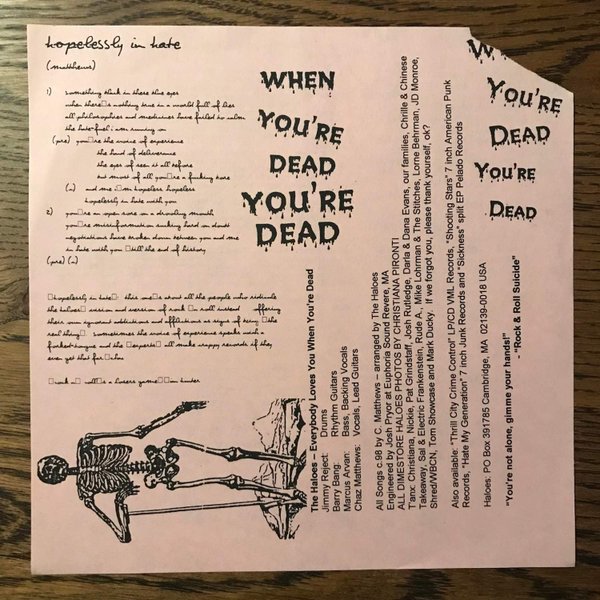 hopelessly in hate
(matthews)
1) something stuck in there this eyes
when there□s nothing true in a world full of lies
all philosophies and medicines have failed to calm
the hate-fuel i am running on
(pre) you□re the voice of experience
the hand of deliverance
the eyes of seen it all before
but most of all you□re a fucking bore
(□) and me i□m hopeless hopeless
hopelessly in hate with you
2) you□re an open sore on a drooling mouth
you□re misinformation sucking hard on doubt
negotiations have broken down between you and me
in hate with you □till the end of history
(pre) (□)
□hopelessly in hate□: this one□s about all the people who ridicule
the haloes□ vision and version of rock □n roll instead offering
their own ignored addictions and afflictions as signs of being □the
real thing□. sometimes the voice of experience speaks with a
forked-tongue and the □experts□ all make crappy records if they
even get that far □chuc
□rock n□ roll□s a losers game□□□ian hunter
WHEN
YOU'RE
DEAD
YOU'RE
DEAD
The Haloes – Everybody Loves You When You're Dead
Jimmy Reject: Drums
Barry Bang: Rhythm Guitars
Marcus Arvan: Bass, Backing Vocals
Chaz Matthews: Vocals, Lead Guitars
All Songs c.98 by C. Matthews – arranged by The Haloes
Engineered by Josh Pryor at Euphoria Sound Revere, MA
ALL DIMESTORE HALOES PHOTOS BY CHRISTIANA PIRONTI
T'anx: Christiana, Nickie, Pat Grindstaff, Josh Rutledge, Darla & Dana Evans, our families, Chrille & Chinese
Takeaway, Sal & Electric Frankenstein, Rude A., Mike Lohrman & The Stitches, Lorne Behrman, JD Monroe,
Shred/WBCN, Tom Showcase and Mark Ducky. If we forgot you, please thank yourself, ok?
Also available: "Thrill City Crime Control" LP/CD VML Records, "Shooting Stars" 7 inch American Punk
Records, "Hate My Generation" 7 inch Junk Records and "Sickness" split EP Pelado Records
Haloes: PO Box 391785 Cambridge, MA 02139-0018 USA
"You're not alone, gimme your hands!"
- "Rock & Roll Suicide"
YOU'RE
DEAD
YOU'RE
DEAD